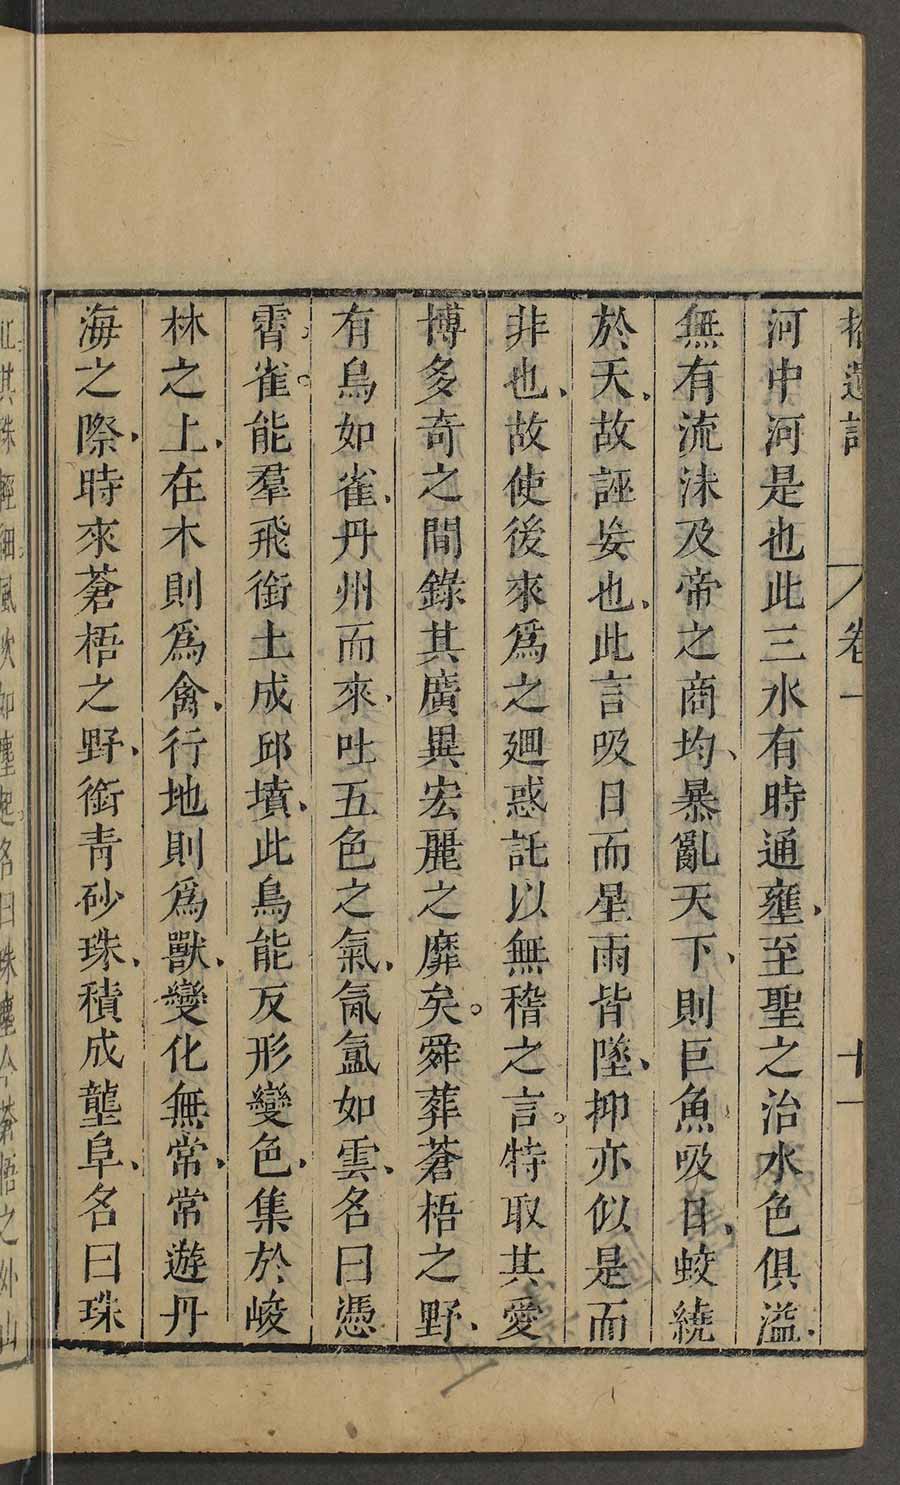 拾遺記 卷一 十一
河中河是也此三水有時通壅、至聖之治水色俱溢、
無有流沫及帝之商均、暴亂天下、則巨魚吸日、蛟繞
於天、故誣妄也、此言吸日而星雨皆墜、抑亦似是而
非也、故使後來爲之廻惑託以無稽之言。特取其愛
博多奇之間錄其廣異宏麗之靡矣。舜葬蒼梧之野、
有鳥如雀、丹州而來、吐五色之氣、氤氳如雲、名曰憑
霄雀。能羣飛銜土成邱墳、此鳥能反形變色、集於峻
林之上、在木則爲禽、行地則爲獸、變化無常、常遊丹
海之際、時來蒼梧之野、銜青砂珠、積成壟阜、名曰珠
其珠輕細風吹如塵起。名曰珠塵今蒼梧之外山